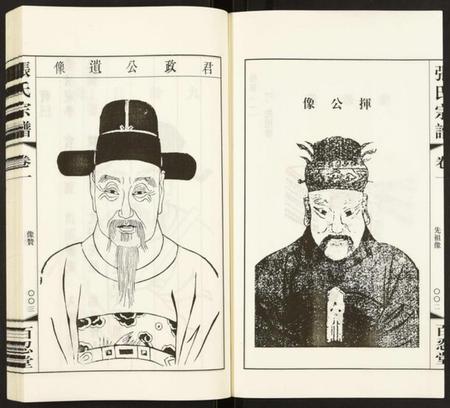 揮公像
張氏宗譜
卷一
先祖像
〇〇二
百忍堂
君政公遺像
張氏宗譜
卷一
像贊
〇〇三
百忍堂